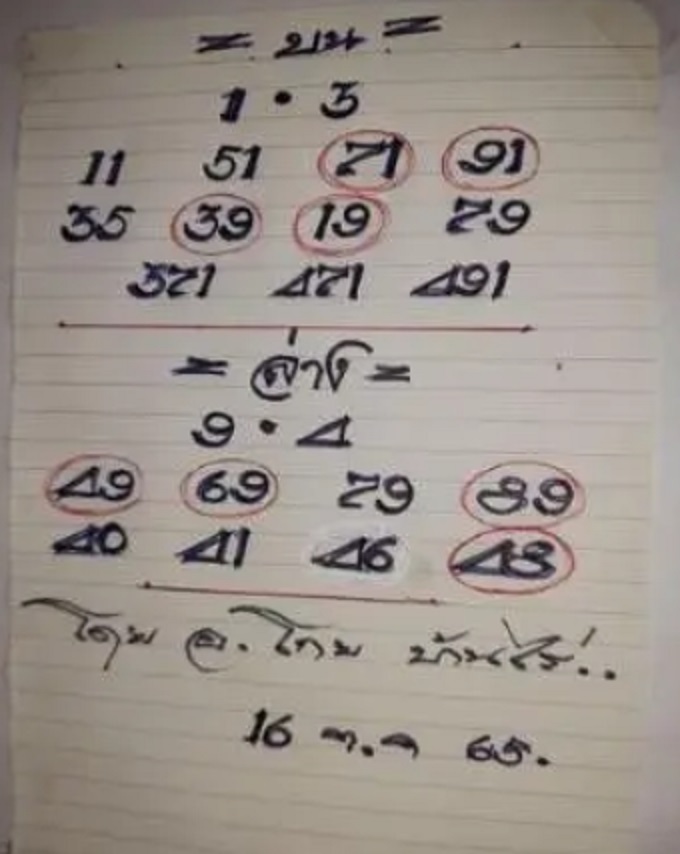 = บน =
1 • 3
11 51 71 91
35 39 19 79
371 471 491
= ล่าง =
9 • 4
49 69 79 89
40 41 46 48
โดย อ. โทน บ้านไร่..
16 ต.ค 65.